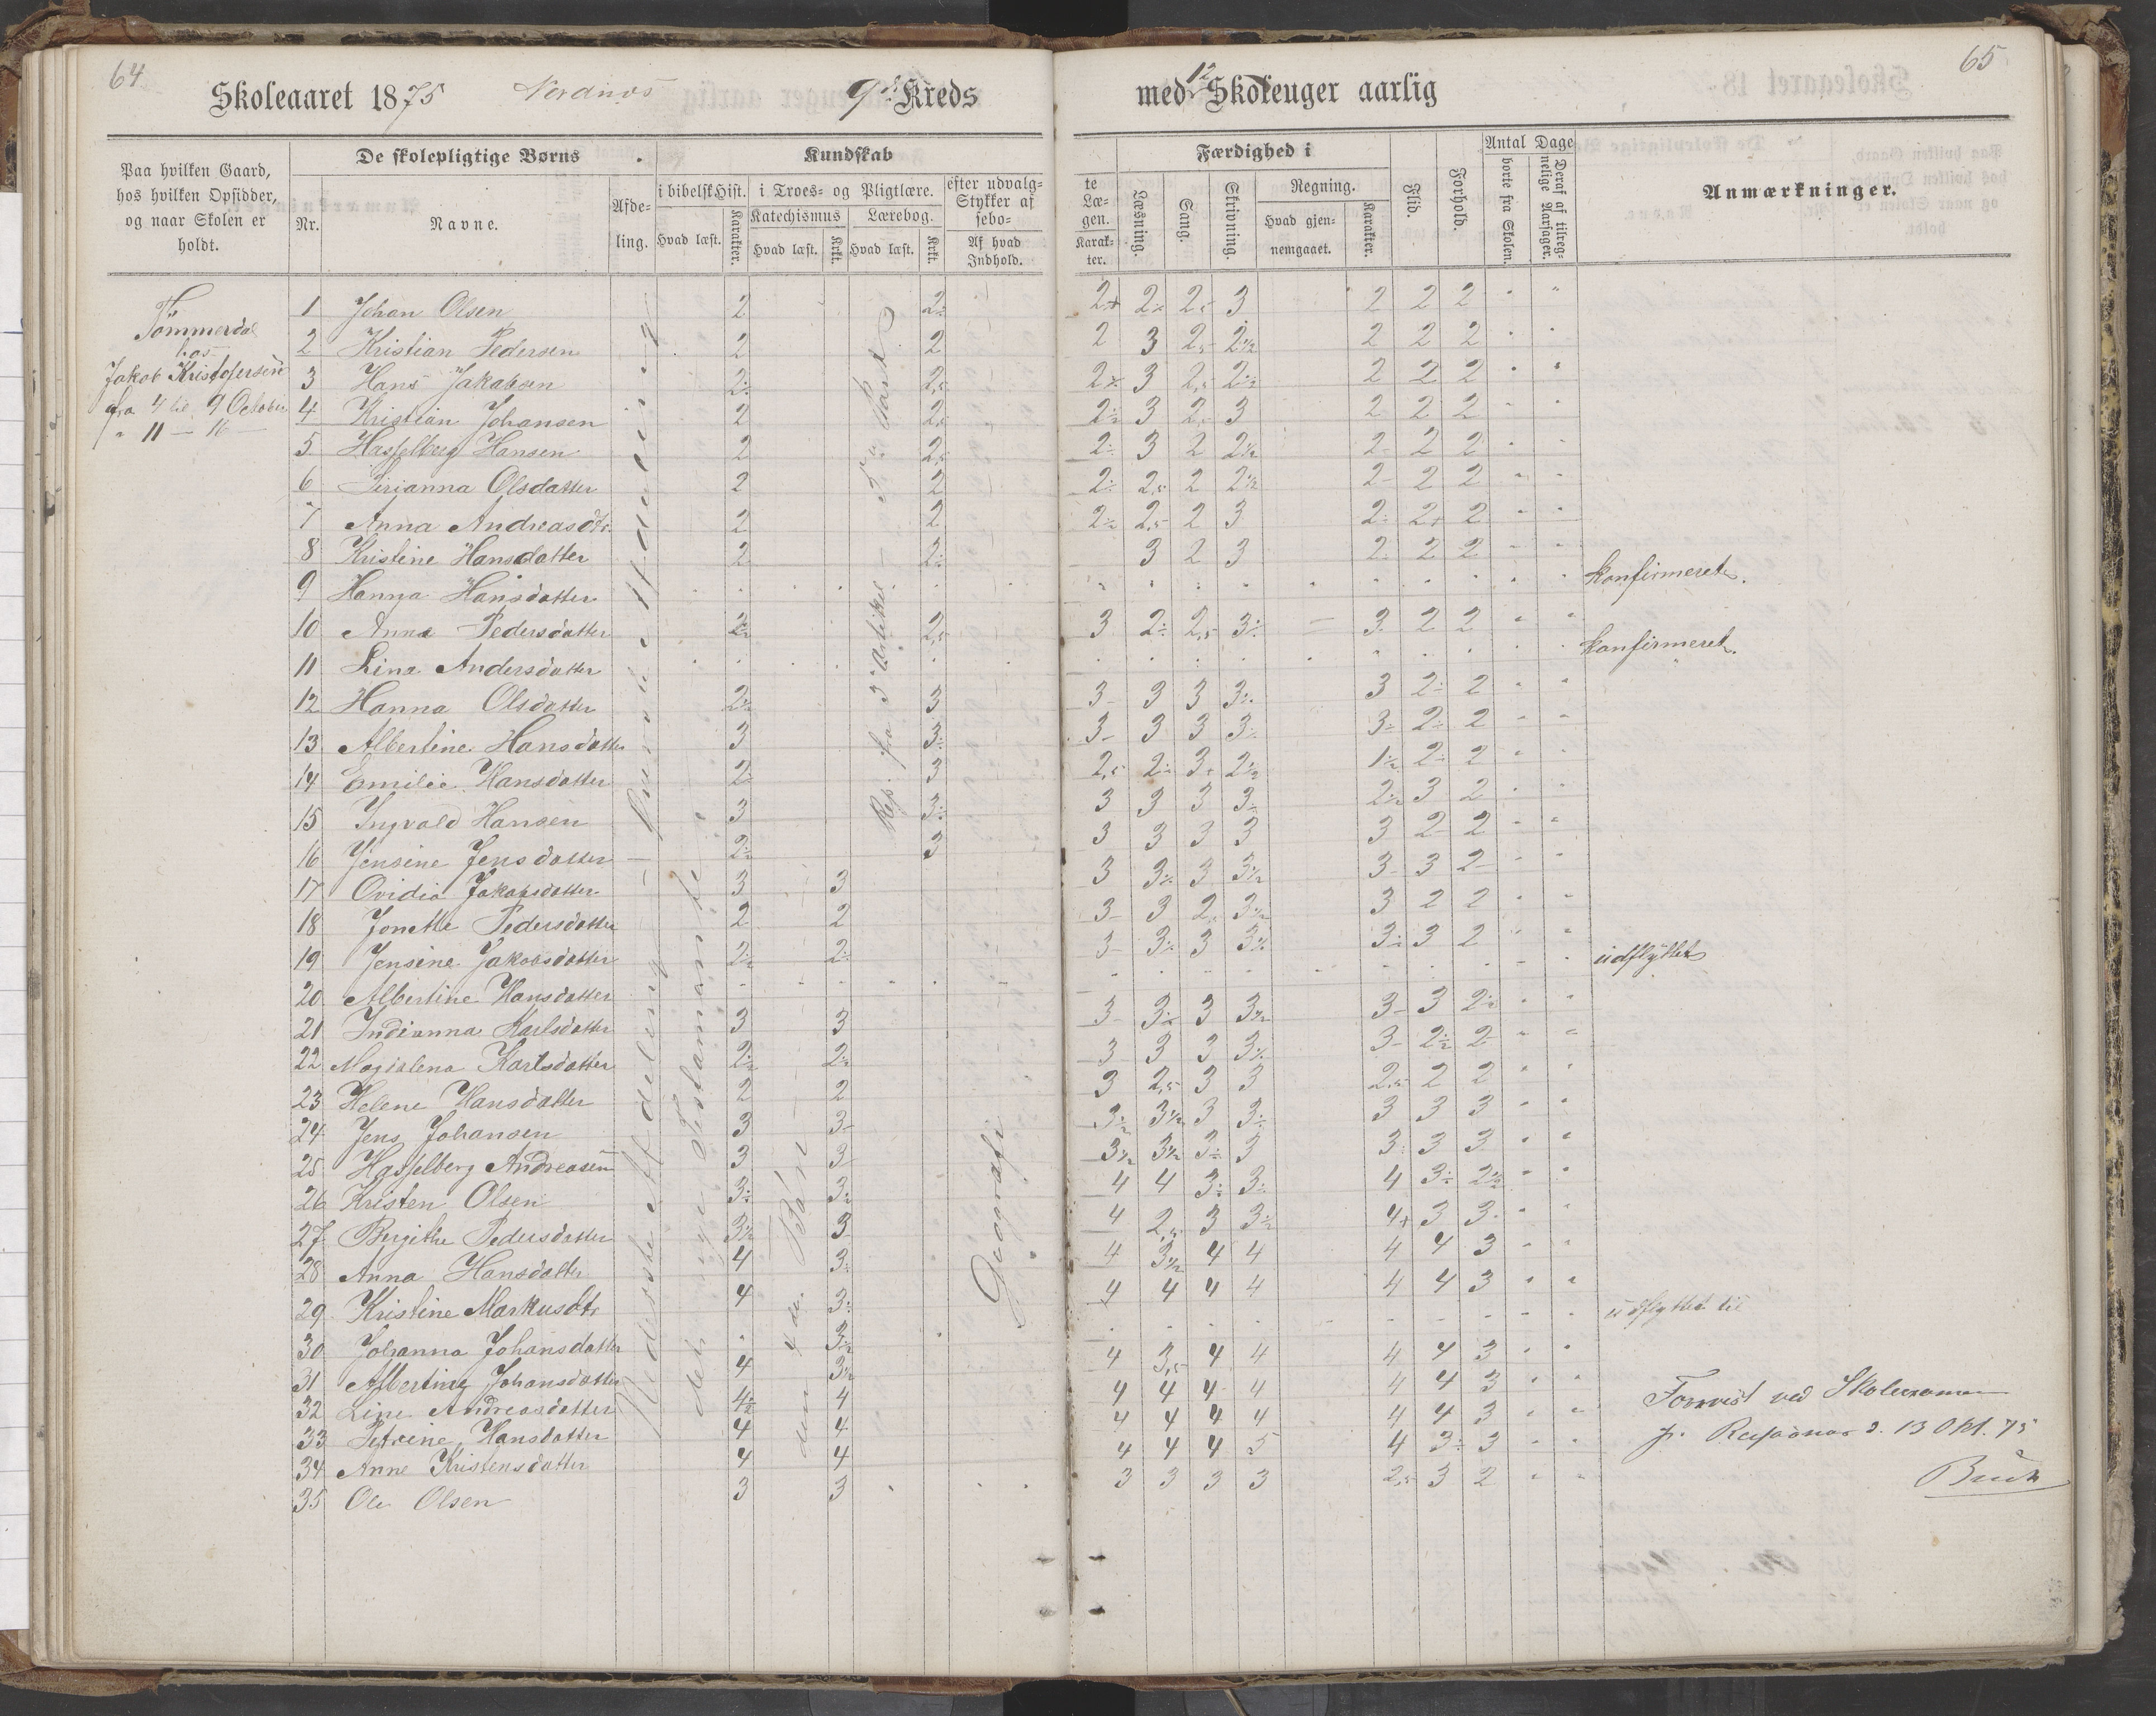 64
Skoleaaret 1875 Nordnæs 9de Kreds
med 12 Skoleuger aarlig
65
Paa hvilken Gaard, hos hvilken Opsidder, og naar Skolen er holdt.
De skolepligtige Børns
Nr.
Navne.
Afdeling.
Kundskab
i bibelsk Hist.
Hvad læst.
Karakter.
i Troes- og Pligtlære.
Katechismus
Hvad læst.
Krkt.
Lærebog.
Hvad læst.
Krkt.
efter udvalgte Stykker af Læsebogen.
Af hvad Indhold.
Karakter.
Færdighed i
Læsning.
Sang.
Skrivning.
Regning.
Hvad gjennemgaaet.
Karakter.
Flid.
Forhold.
Antal Dage
borte fra Skolen.
Deraf af tilregnelige Aarsager.
Anmærkninger.
Tömmerdal
hos
Jakob Kristofersen
fra 4 til 9 October
" 11 — 16 —
1 Johan Olsen 2 2÷ 2+ 2 2,5 3 2 2 2 " "
2 Kristian Pedersen 2 2 2 3 2,5 2½ 2 2 2 " "
3 Hans Jakobsen 2÷ 2,5 2 3 2,5 2½ 2 2 2 " "
4 Kristian Johansen 2 2,5 2½ 3 2,5 3 2 2 2 " "
5 Hasselberg Hansen 2 2,5 2÷ 3 2 2½ 2 2 2 " "
6 Sirianna Olsdatter 2 2 2÷ 2,5 2 2½ 2 2 2 " "
7 Anna Andreasdtr. 2 2 2½ 2,5 2 3 2÷ 2+ 2 " "
8 Kristine Hansdatter 2 2÷ 3 2 3 2 2 2 " "
9 Hanna Hansdatter konfirmeret.
10 Anna Pedersdatter 2½ 2,5 3 2÷ 2,5 3÷ 3 2 2 " "
11 Lina Andersdatter konfirmeret.
12 Hanna Olsdatter 2½ 3 3 3 3 3½ 3 2÷ 2 " "
13 Albertine Hansdatter 3 3÷ 3 3 3 3÷ 3÷ 2÷ 2 " "
14 Emilie Hansdatter 2÷ 3 2,5 2÷ 3+ 2½ 1½ 2÷ 2 " "
15 Ingvald Hansen 3 3÷ 3 3 3 3÷ 2½ 3 2 " "
16 Jensine Jensdatter 2½ 3 3 3 3 3 3 2 2 " "
17 Ovidia Jakobsdatter 3 3 3 3½ 3 3½ 3 3 2 " "
18 Jonette Pedersdatter 2 2 3 3 2,5 3½ 3 2 2 " "
19 Jensine Jakobsdatter 2½ 2÷ 3 3½ 3 3½ 3÷ 3 2 " "
20 Albertine Hansdatter udflyttet
21 Indianna Karlsdatter 3 3 3 3÷ 3 3½ 3 3 2÷ " "
22 Magdalena Karlsdatter 2½ 2½ 3 3 3 3½ 3 2½ 2 " "
23 Helene Hansdatter 2 2 3 2,5 3 3 2,5 2 2 " "
24 Jens Johansen 3 3 3½ 3½ 3 3÷ 3 3 3 " "
25 Hasselberg Andreasen 3 3 3½ 3½ 3÷ 3 3 3 3 " "
26 Kristen Olsen 3÷ 3½ 4 4 3÷ 3÷ 4 3÷ 2½ " "
27 Bergithe Pedersdatter 3½ 3 4 2,5 3 3½ 4+ 3 3 " "
28 Anna Hansdatter 4 3÷ 4 3½ 4 4 4 4 3 " "
29 Kristine Markusdtr 4 3÷ 4 4 4 4 4 4 3 " "
30 Johanna Johansdatter 3½ udflyttet til
31 Albertine Johansdatter 4 3½ 4 3,5 4 4 4 4 3 " "
32 Line Andreasdatter 4½ 4 4 4 4 4 4 4 3 " "
33 Petrine Hansdatter 4 4 4 4 4 4 4 4 3 " "
34 Anne Kristensdatter 4 4 4 4 4 5 4 3÷ 3 " "
35 Ole Olsen 3 3 3 3 3 3 2,5 3 2 " "
Nederste Afdeling
det nye Testamente
4de Bön
Rep. fra 3 Artikel
Geografi
Forevist ved Skoleexamen
p. Refsnes d. 13 Okt. 75